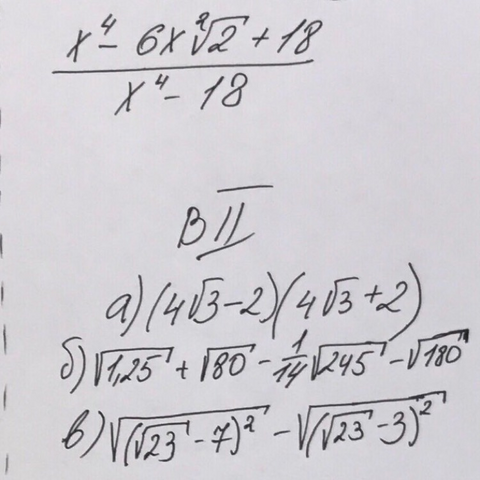 x⁴ - 6x²√2 + 18
x⁴ - 18
В II
а) (4√3 - 2)(4√3 + 2)
б) √1,25 + √80 - 1/14 √245 - √180
в) √(√23 - 7)² - √(√23 - 3)²